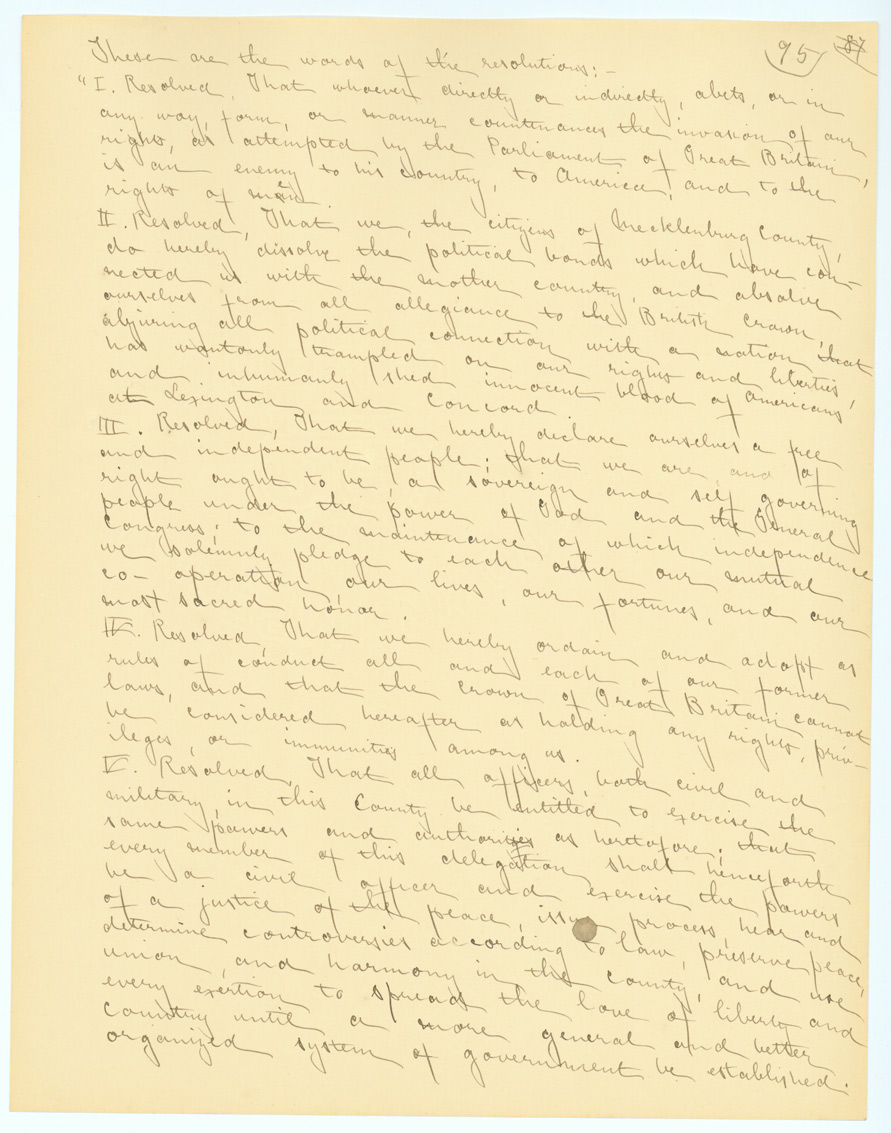 95 87
These are the words of the resolutions:-
"I. Resolved, That whoever directly or indirectly, abets, or in
any way, form, or manner countenances the invasion of our
rights, as attempted by the Parliament of Great Britain,
is an enemy to his country, to America, and to the
rights of man.
II. Resolved, That we, the citizens of Mecklenburg County,
do hereby dissolve the political bonds which have con-
nected us with the mother country, and absolve
ourselves from all allegiance to the British crown,
abjuring all political connection with a nation that
has wantonly trampled on our rights and liberties,
and inhumanly shed innocent blood of Americans
at Lexington and Concord.
III. Resolved, That we hereby declare ourselves a free
and independent people; that we are, and of
right ought to be, a sovereign and self governing
people under the power of God and the General
Congress; to the maintenance of which independence
we solemnly pledge to each other our mutual
co-operation, our lives, our fortunes, and our
most sacred honor.
IV. Resolved That we hereby ordain and adopt as
rules of conduct all and each of our former
laws, and that the crown of Great Britain cannot
be considered hereafter as holding any rights, priv-
ileges, or immunities among us.
V. Resolved, That all officers, both civil and
military, in this County be entitled to exercise the
same powers and authorities as heretofore; that
every member of this delegation shall henceforth
be a civil officer and exercise the powers
of a justice of the peace, issue process, hear and
determine controversies according to law, preserve peace,
union, and harmony in the county, and use
every exertion to spread the love of liberty and
Country until a more general and better
organized system of government be established.